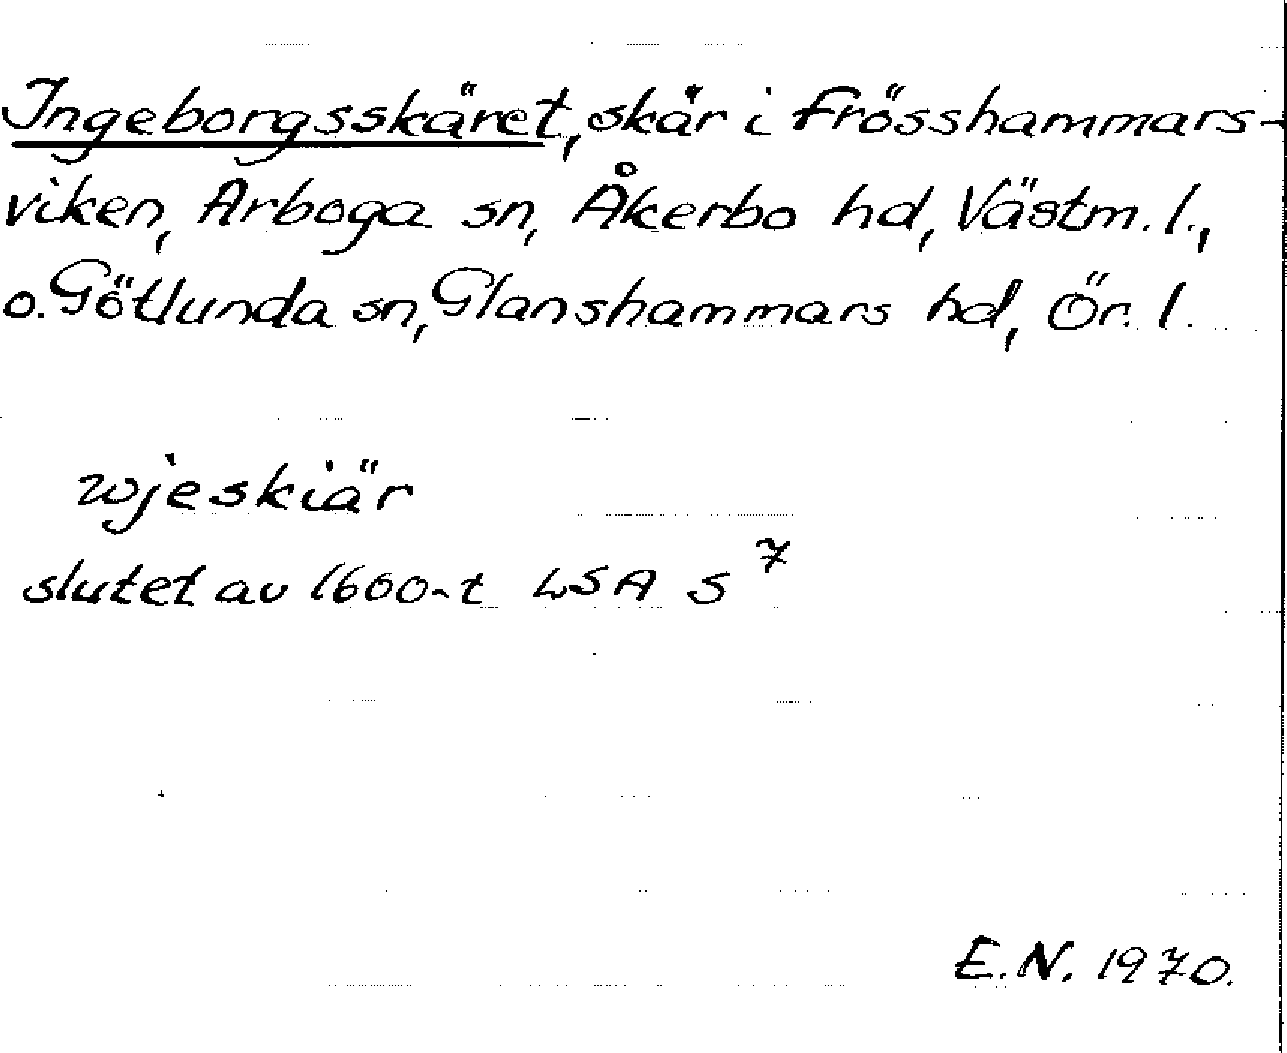 Ingeborgsskäret, skär i Frösshammars-
viken, Arboga sn, Åkerbo hd, Västm. l.,
o. Götlunda sn, Glanshammars hd, Ör. l.
wjeskiär
slutet av 1600-t LSA S 7
E.N. 1970.